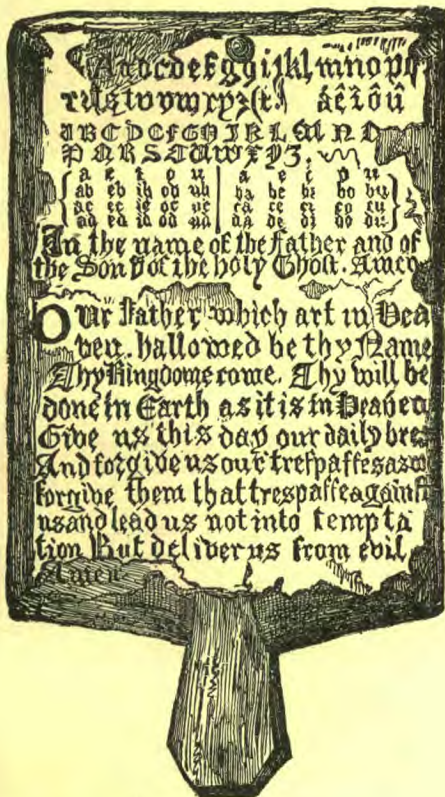 Aabcdefggijkl,mnopq
áêîôû
ABCDEFGHIJKLMNO
PQRSTUWXYZ.
a e i o u | a e i o u
ab eb ib ob ub | ba be bi bo bu
ac ec ic oc uc | ca ce ci co cu
ad ed id od ud | da de di do du
In the name of the Father and of
the Son & of the holy Ghoſt. Amen
Our Father which art in Hea
ven. hallowed be thy Name
Thy Kingdome come. Thy will be
done in Earth as it is in Heaven
Give us this day our daily bre
And forgive us our treſpaſſes as w
forgive them that treſpaſſe againſt
us and lead us not into tempta
tion But deliver us from evil
Amen